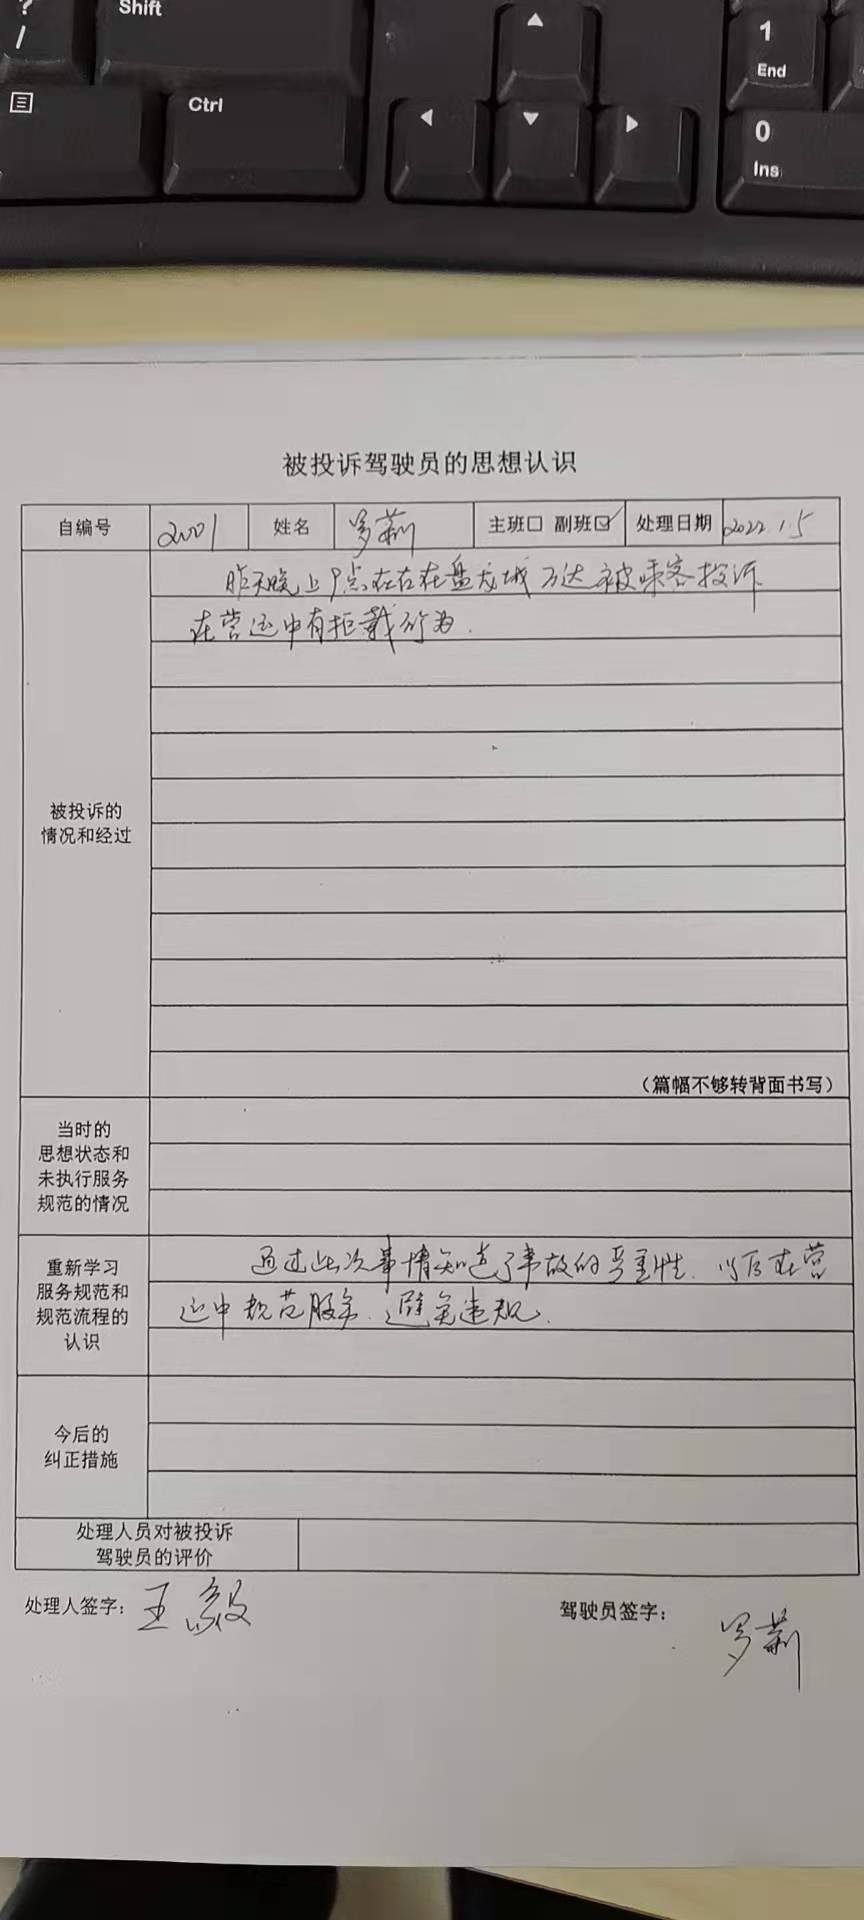 ?
/
Shift
1
End
Ctrl
0
Ins
被投诉驾驶员的思想认识
自编号 2001 姓名 罗莉 主班□ 副班☑ 处理日期 2022.1.5
被投诉的
情况和经过
昨天晚上9点左右在盘龙城万达被乘客投诉
在营运中有拒载行为.
(篇幅不够转背面书写)
当时的
思想状态和
未执行服务
规范的情况
重新学习
服务规范和
规范流程的
认识
通过此次事情知道了事故的严重性.以后在营
运中规范服务.避免违规.
今后的
纠正措施
处理人员对被投诉
驾驶员的评价
处理人签字: 王毅 驾驶员签字: 罗莉